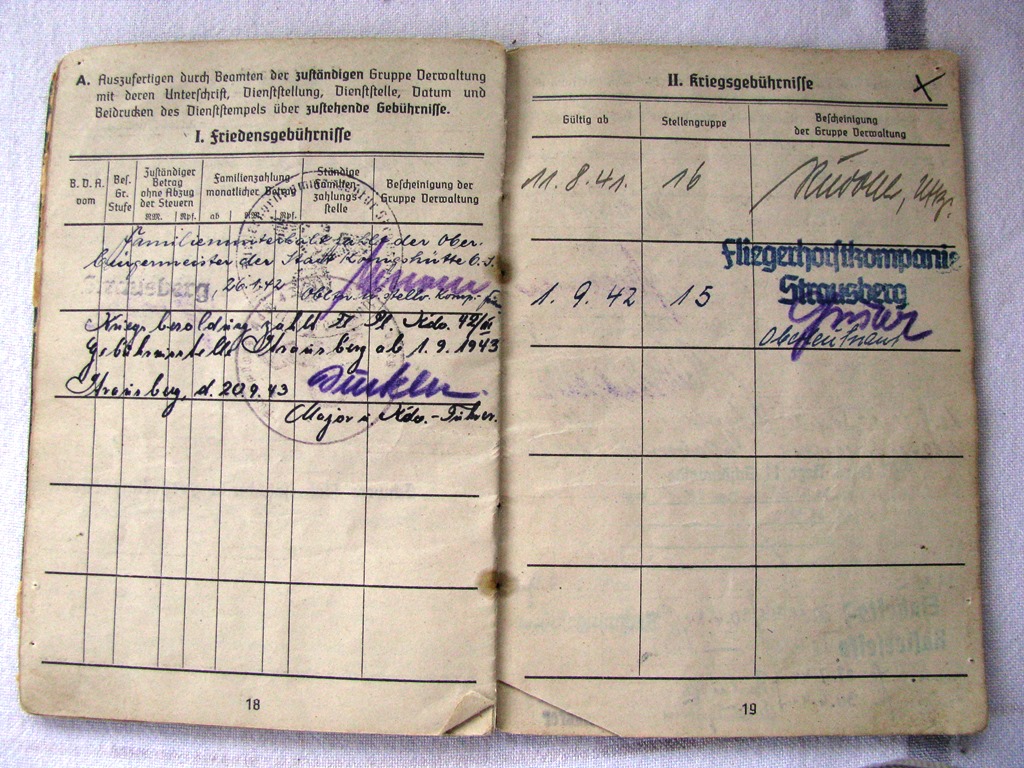 A. Auszufertigen durch Beamten der zuständigen Gruppe Verwaltung
mit deren Unterschrift, Dienststellung, Dienststelle, Datum und
Beidrucken des Dienststempels über zustehende Gebührnisse.
I. Friedensgebührnisse
B. D. A. vom
Bes. Gr. Stufe
Zuständiger Betrag ohne Abzug der Steuern
RM. Rpf.
Familienzahlung monatlicher Betrag
ab RM. Rpf.
Ständige Familienzahlungsstelle
Bescheinigung der Gruppe Verwaltung
Familienunterhalt zahlt der Ober-
bürgermeister der Stadt Königshütte O.S.
26.1.42
Kriegsbesoldung zahlt
Gebührnisstelle Strausberg ab 1.9.1943
Strausberg, d. 20.9.43
Major u. Kdo.-Führer.
18
II. Kriegsgebührnisse
Gültig ab
Stellengruppe
Bescheinigung der Gruppe Verwaltung
11.8.41. 16
Fliegerhorstkompanie
Strausberg
1.9.42 15
Oberleutnant
19